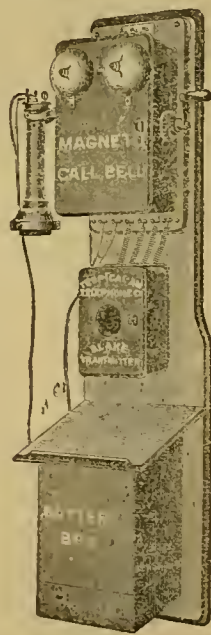 A A
MAGNETO
CALL BELL
AMERICAN
TELEPHONE CO
BLAKE
TRANSMITTER
BATTERY
BOX